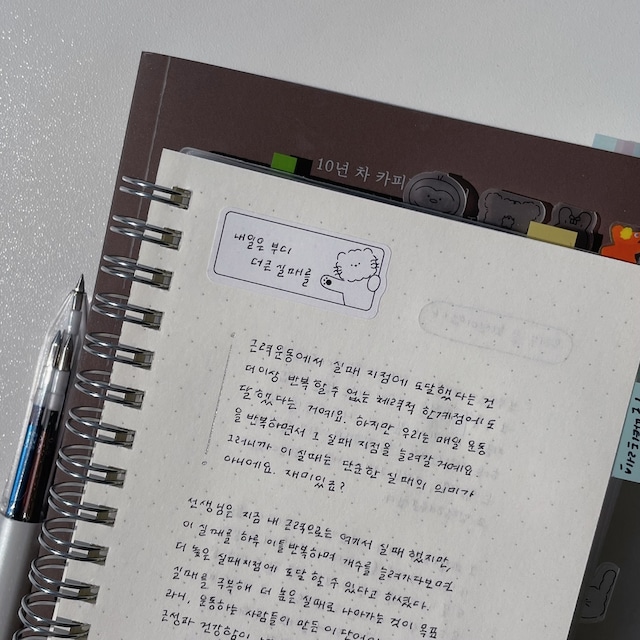 10년 차 카피
내일은 부디
더큰 실패를
근력운동에서 실패 지점에 도달했다는 건
더이상 반복할 수 없는 체력적 한계점에 도
달했다는 거예요. 하지만 우리는 매일 운동
을 반복하면서 그 실패 지점을 늘려갈 거예요.
그러니까 이 실패는 단순한 실패의 의미가
아녜요. 재미있죠?
선생님은 지금 내 근력으로는 여기서 실패했지만,
이 실패를 하루 이틀 반복하며 개수를 늘려가다보면
더 높은 실패지점에 도달할 수 있다고 하셨다.
실패를 극복해 더 높은 실패로 나아가는 것이 목표
라니, 운동하는 사람들이 만든 이 단어
근성과 건강함이